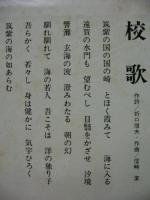 校歌
作詩/折口信夫・作曲/信時 潔
筑紫の国の国の崎 とほく霞みて 海に入る
遠賀の水門も 望むべし 目翳をかざせ 汐境
響灘 玄海の波 澄みわたる 朝の幻
馴れ馴れて 海の若人 吾こそは 洋の独り子
吾らかく 若々し 身は健かに 気宇ひろく
筑紫の海の如あらむ